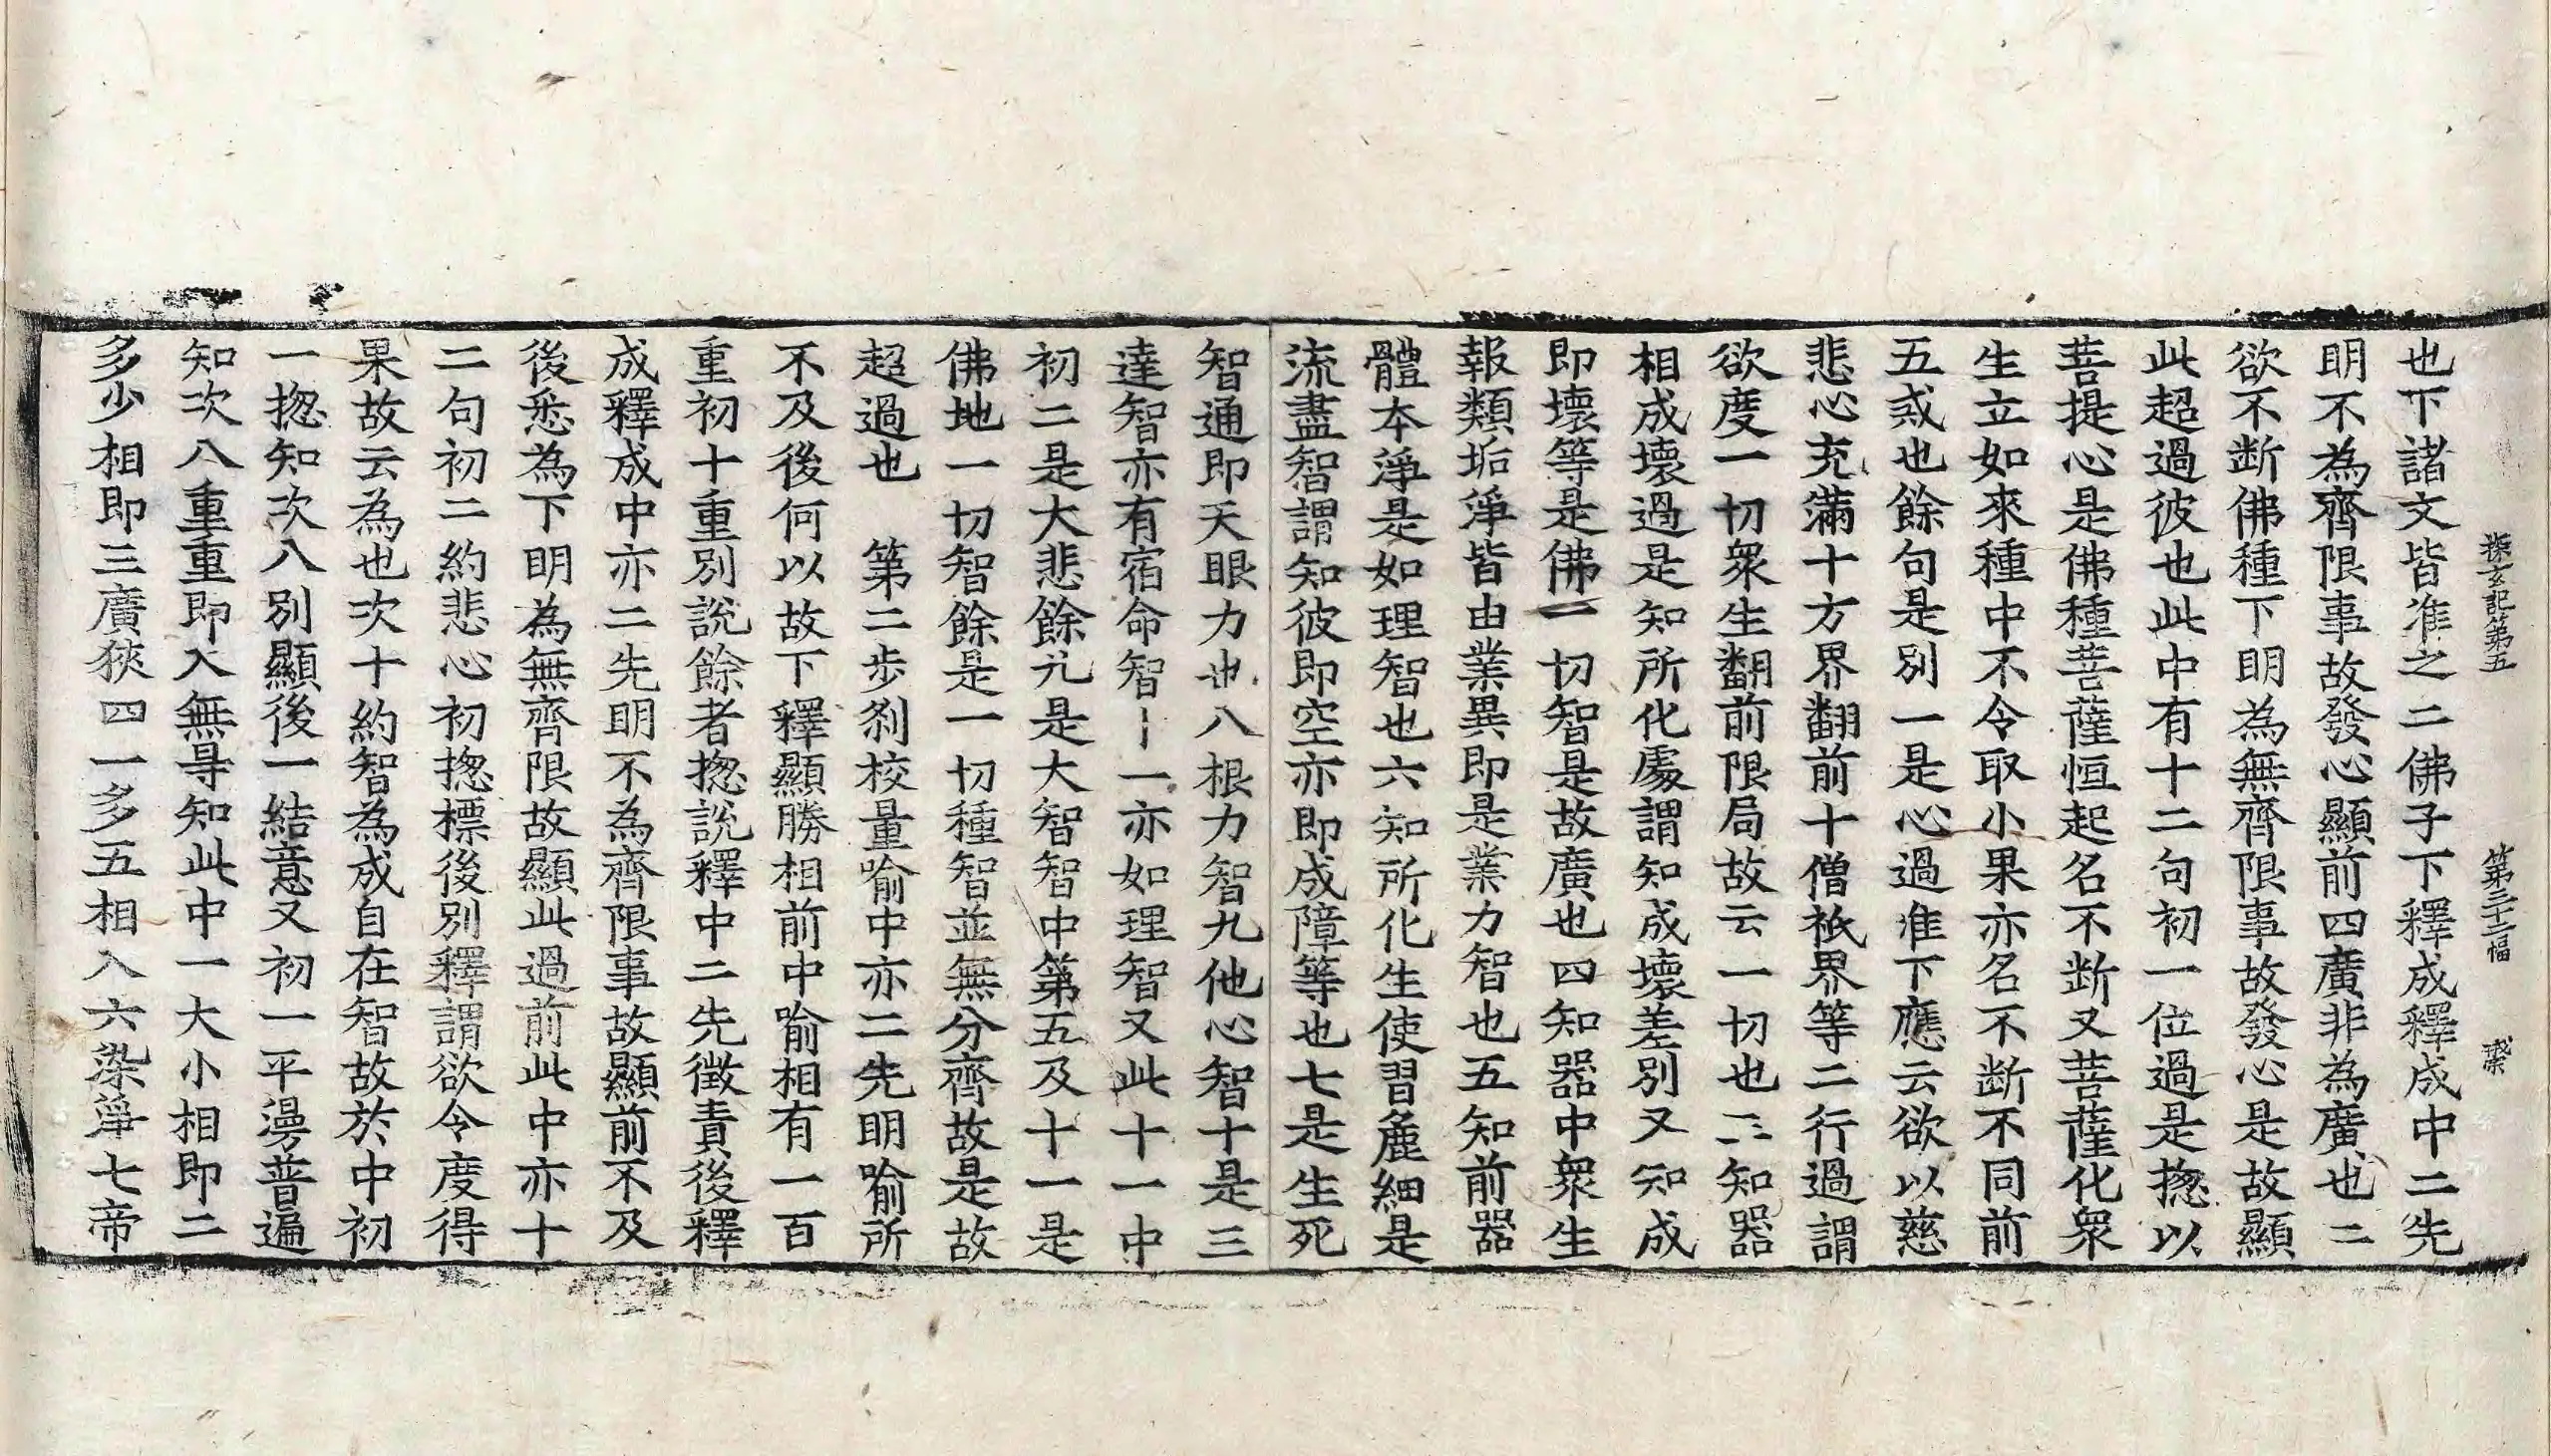 探玄記第五　第三十二幅　
也下諸文皆准之二佛子下釋成釋成中二先
明不為齊限事故發心顯前四廣非為廣也二
欲不断佛種下明為無齊限事故發心是故顯
此超過彼也此中有十二句初一位過是揔以
菩提心是佛種菩薩恒起名不断又菩薩化衆
生立如來種中不令取小果亦名不断不同前
五戒也餘句是別一是心過准下應云欲以慈
悲心充滿十方界翻前十僧祇界等二行過謂
欲度一切衆生翻前限局故云一切也三知器
相成壞過是知所化處謂知成壞差別又知成
即壞等是佛一切智是故廣也四知器中衆生
報類垢淨皆由業異即是業力智也五知前器
體本淨是如理智也六知所化生使習麁細是
流盡智謂知彼即空亦即成障等也七是生死
智通即天眼力也八根力智九他心智十是三
達智亦有宿命智十一亦如理智又此十一中
初二是大悲餘九是大智智中第五及十一是
佛地一切智餘是一切種智並無分齊故是故
超過也　第二步刹校量喻中亦二先明喻所
不及後何以故下釋顯勝相前中喻相有一百
重初十重別說餘者揔說釋中二先徵責後釋
成釋成中亦二先明不為齊限事故顯前不及
後悉為下明為無齊限故顯此過前此中亦十
二句初二約悲心初揔標後別釋謂欲令度得
果故云為也次十約智為成自在智故於中初
一揔知次八別顯後一結意又初一平漫普遍
知次八重重即入無㝵知此中一大小相即二
多少相即三廣狹四一多五相入六染淨七帝